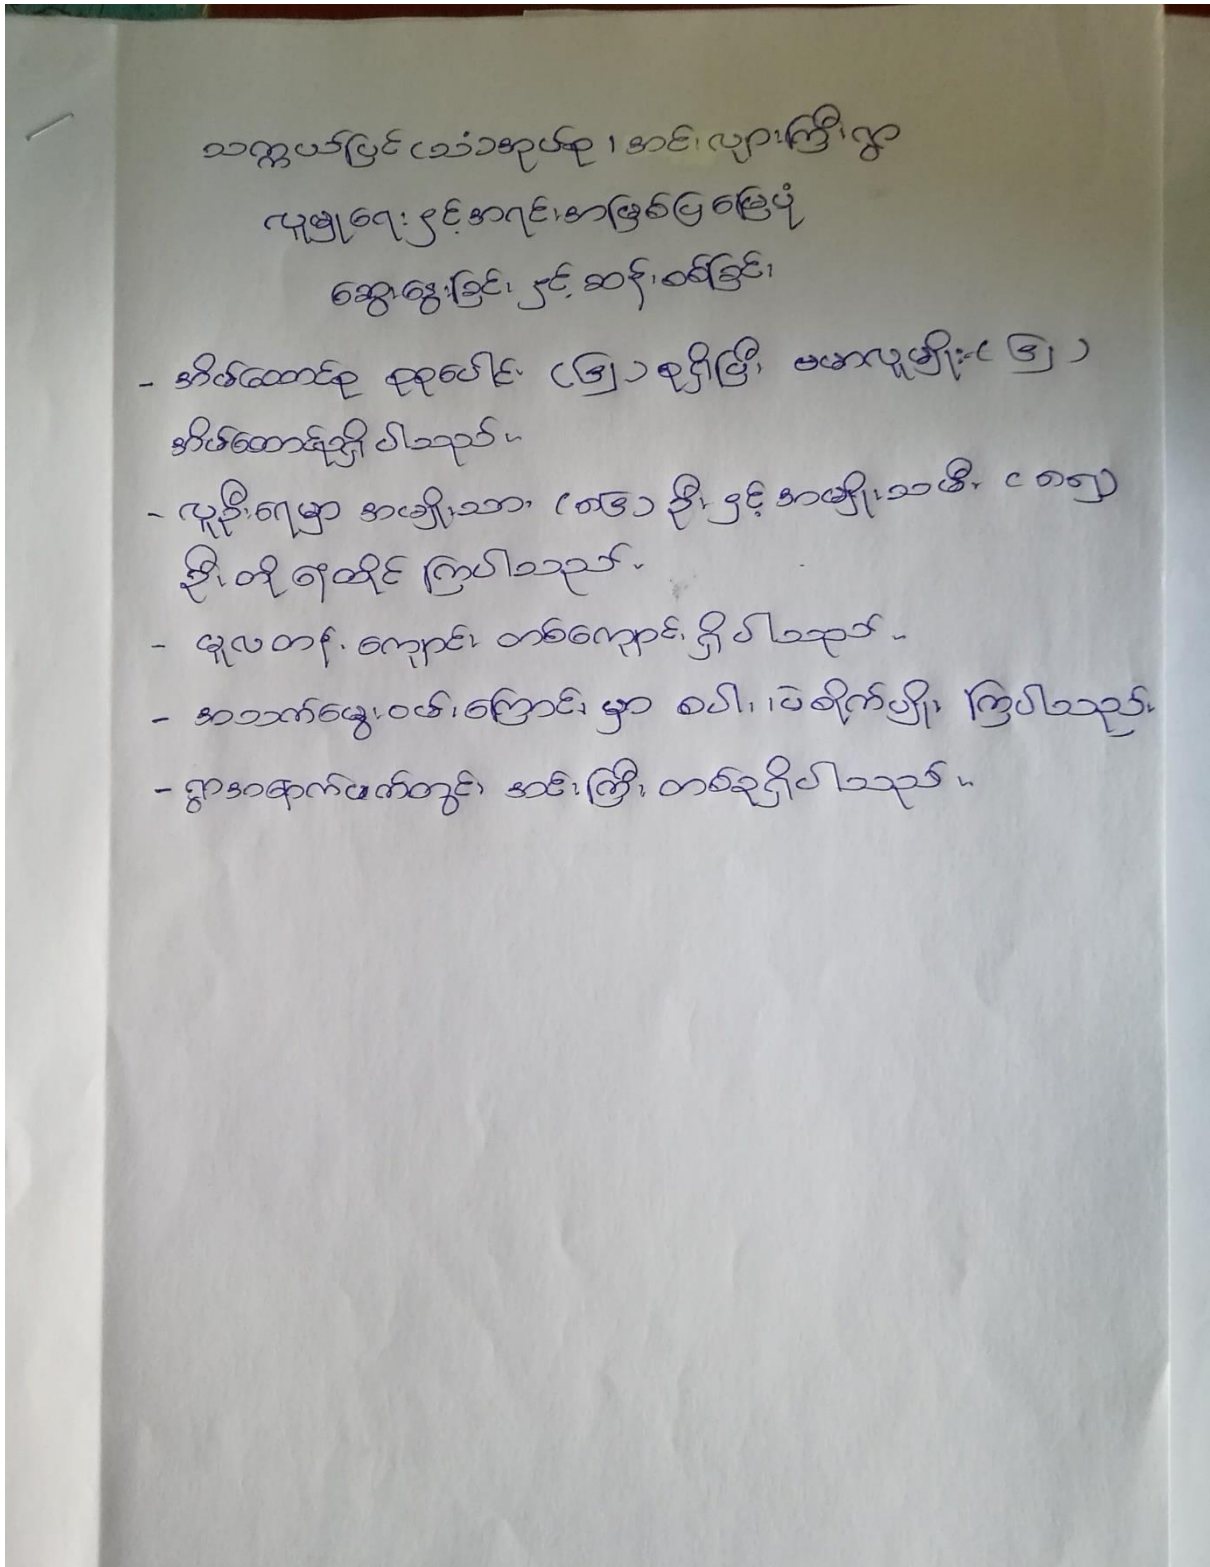 သက္ကယ်ပြင်ကျေးရွာအုပ်စု၊ အင်းလျားကြီးရွာ
လူမှုရေးနှင့်အရင်းအမြစ်ပြမြေပုံ
ဆွေးနွေးခြင်းနှင့်ဆန်းစစ်ခြင်း
- အိမ်ထောင်စု စုစုပေါင်း ( ) စုရှိပြီး ဗမာလူမျိုး ( )
အိမ်ထောင်စုရှိပါသည်။
- လူဦးရေမှာ အမျိုးသား ( ) ဦးနှင့်အမျိုးသမီး ( )
ဦးတို့နေထိုင်ကြပါသည်။
- မူလတန်းကျောင်း တစ်ကျောင်းရှိပါသည်။
- အသက်မွေးဝမ်းကြောင်းမှာ စပါး၊ ပဲစိုက်ပျိုးကြပါသည်။
- ရွာအနောက်ဖက်တွင် အင်းကြီးတစ်ခုရှိပါသည်။